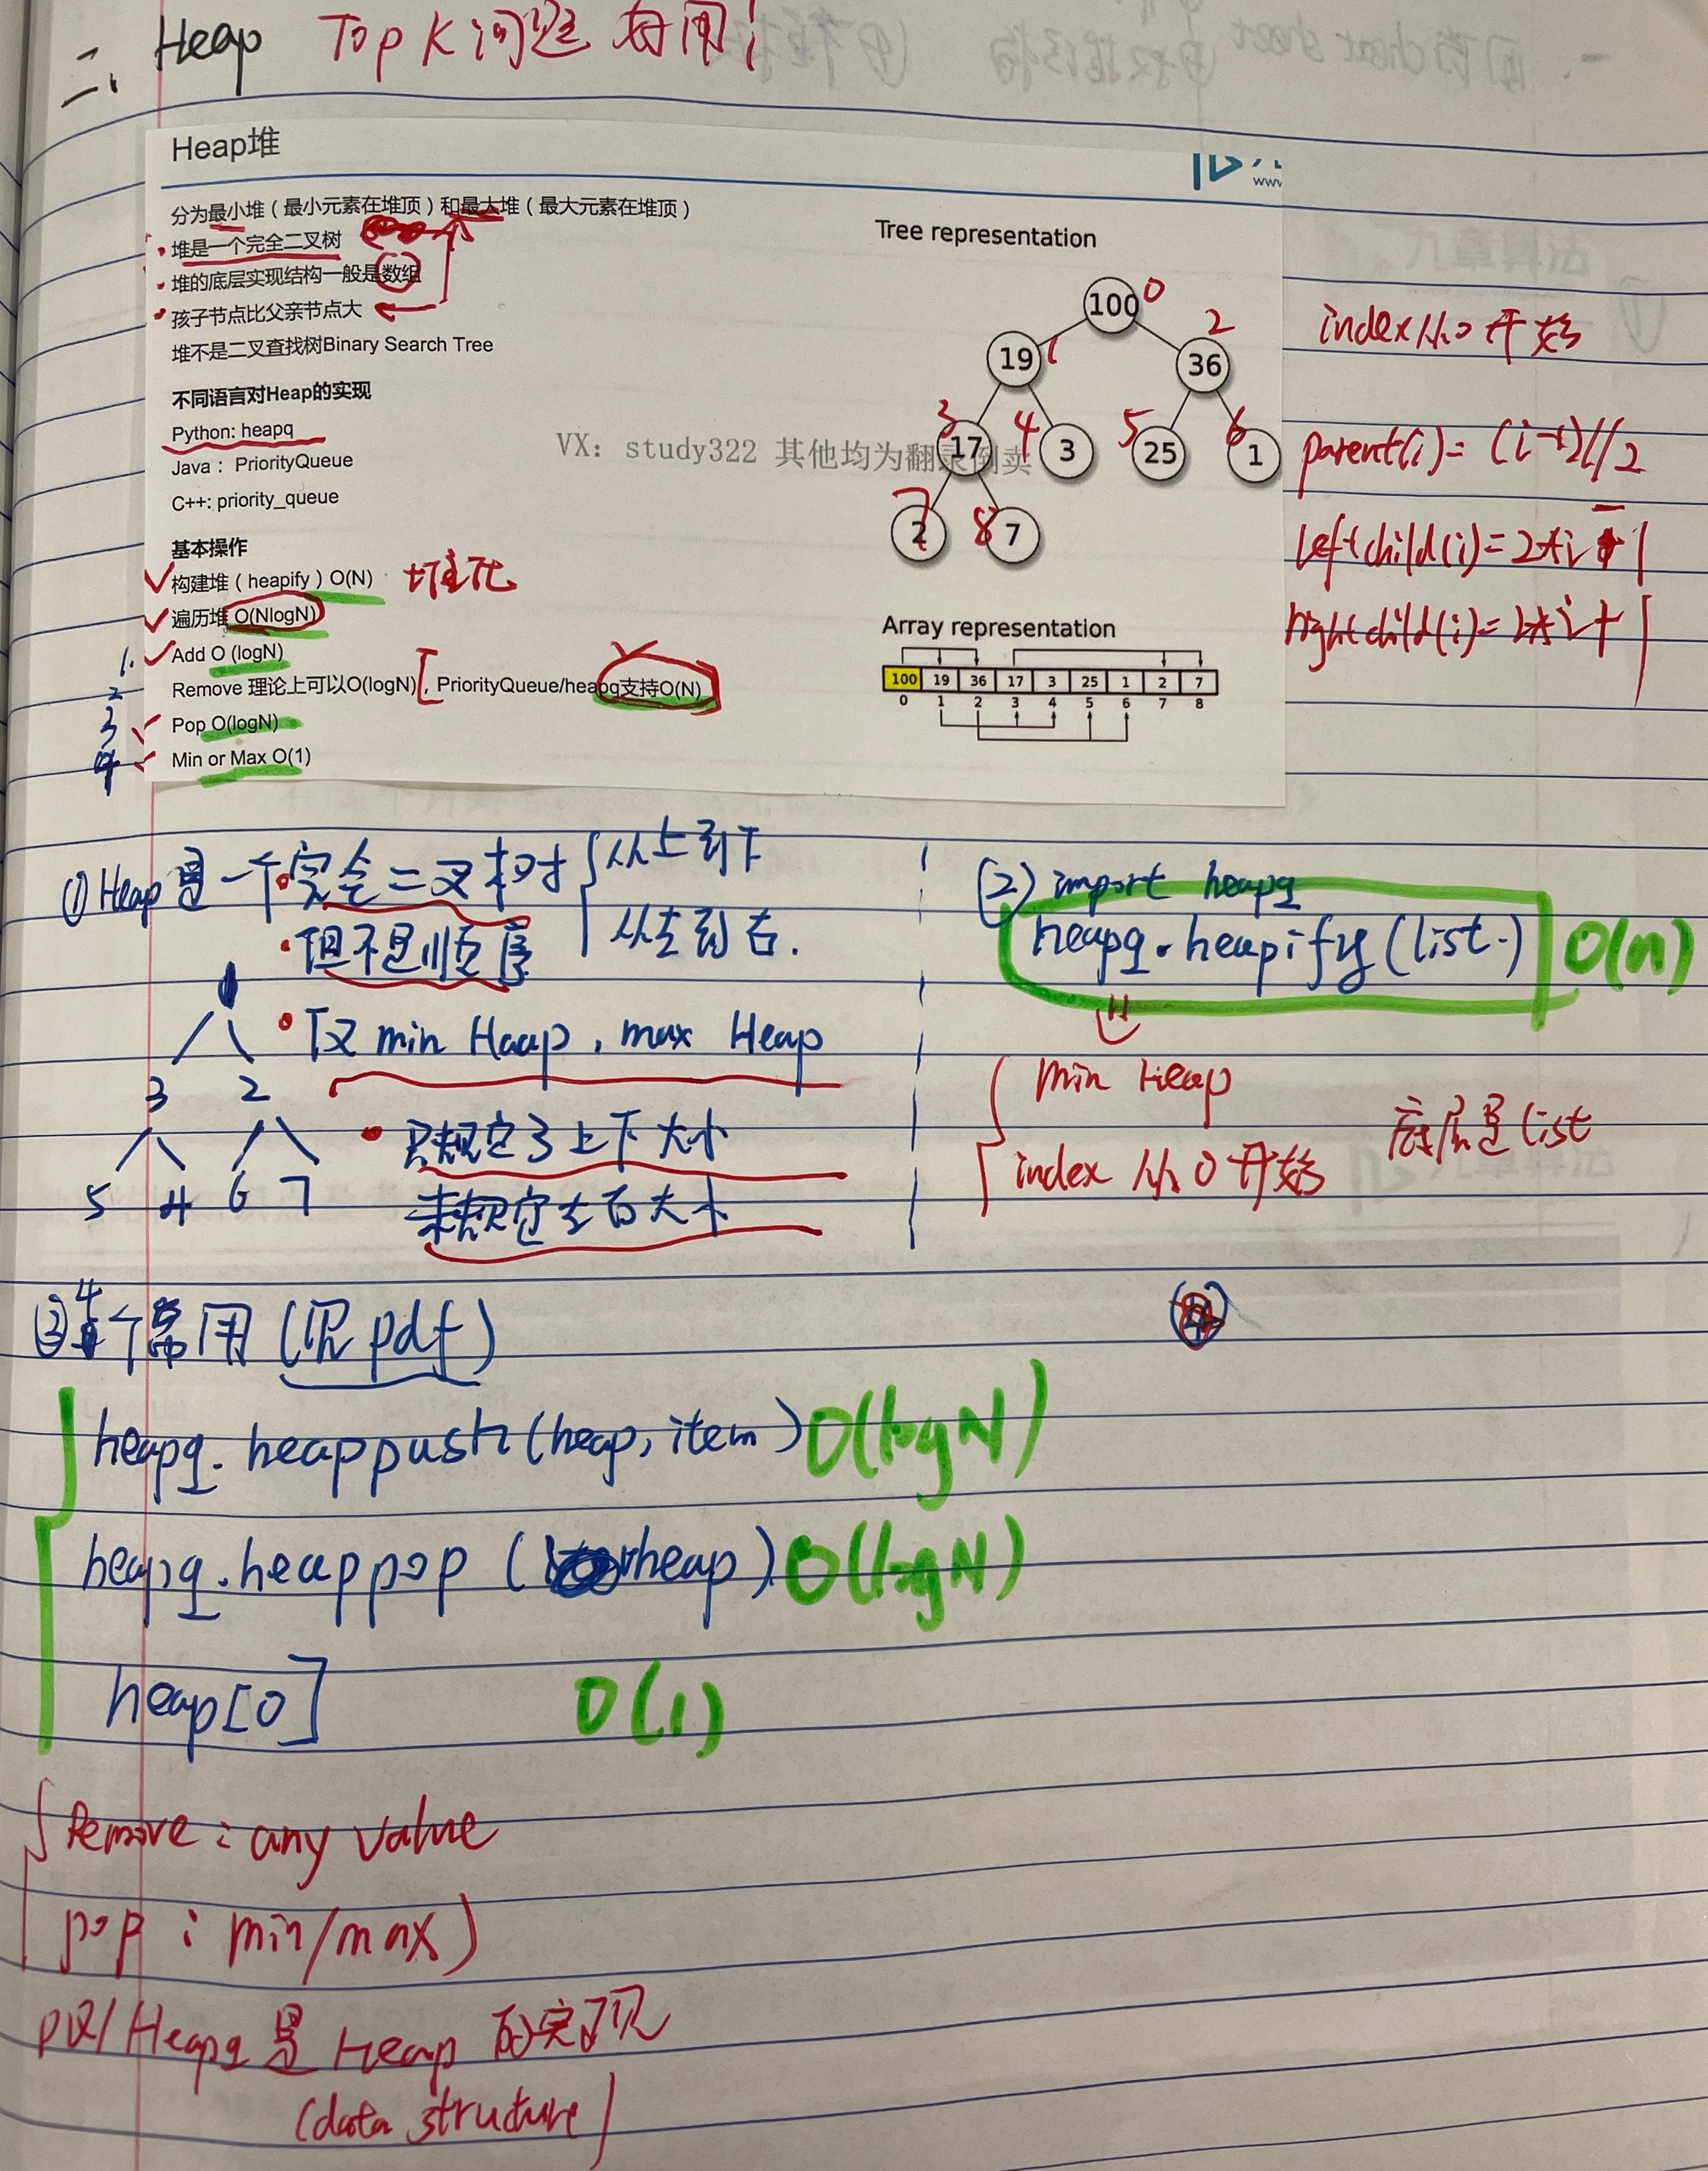 二、Heap Top K问题 有用!
Heap堆
www
分为最小堆（最小元素在堆顶）和最大堆（最大元素在堆顶）
堆是一个完全二叉树
堆的底层实现结构一般是数组
孩子节点比父亲节点大
堆不是二叉查找树Binary Search Tree
不同语言对Heap的实现
Python: heapq
Java：PriorityQueue
C++: priority_queue
VX：study322 其他均为翻录倒卖
基本操作
构建堆（heapify）O(N) 堆化
遍历堆 O(NlogN)
1. Add O (logN)
2 Remove 理论上可以O(logN)，PriorityQueue/heapq支持O(N)
3 Pop O(logN)
4 Min or Max O(1)
Tree representation
100 0
19 1 36 2
3 17 4 3 5 25 6 1
7 2 8 7
Array representation
100 19 36 17 3 25 1 2 7
0 1 2 3 4 5 6 7 8
index从0开始
parent(i)= (i-1)//2
leftchild(i)=2*i+1
rightchild(i)=2*i+
① Heap是一个完全二叉树 从上到下
从左到右.
但不是顺序
仅 min Haap, max Heap
只规定了上下大小
未规定左右大小
1
3 2
5 4 6 7
(2) import heapq
heapq.heapify(list.) O(n)
min Heap
index 从0开始
底层是list
③ 4个常用 (见pdf)
heapq.heappush(heap, item) O(logN)
heapq.heappop (heap) O(logN)
heap[0] O(1)
Remove: any value
pop: min/max)
PQ/Heapq 是 Heap 的实现
(data structure)